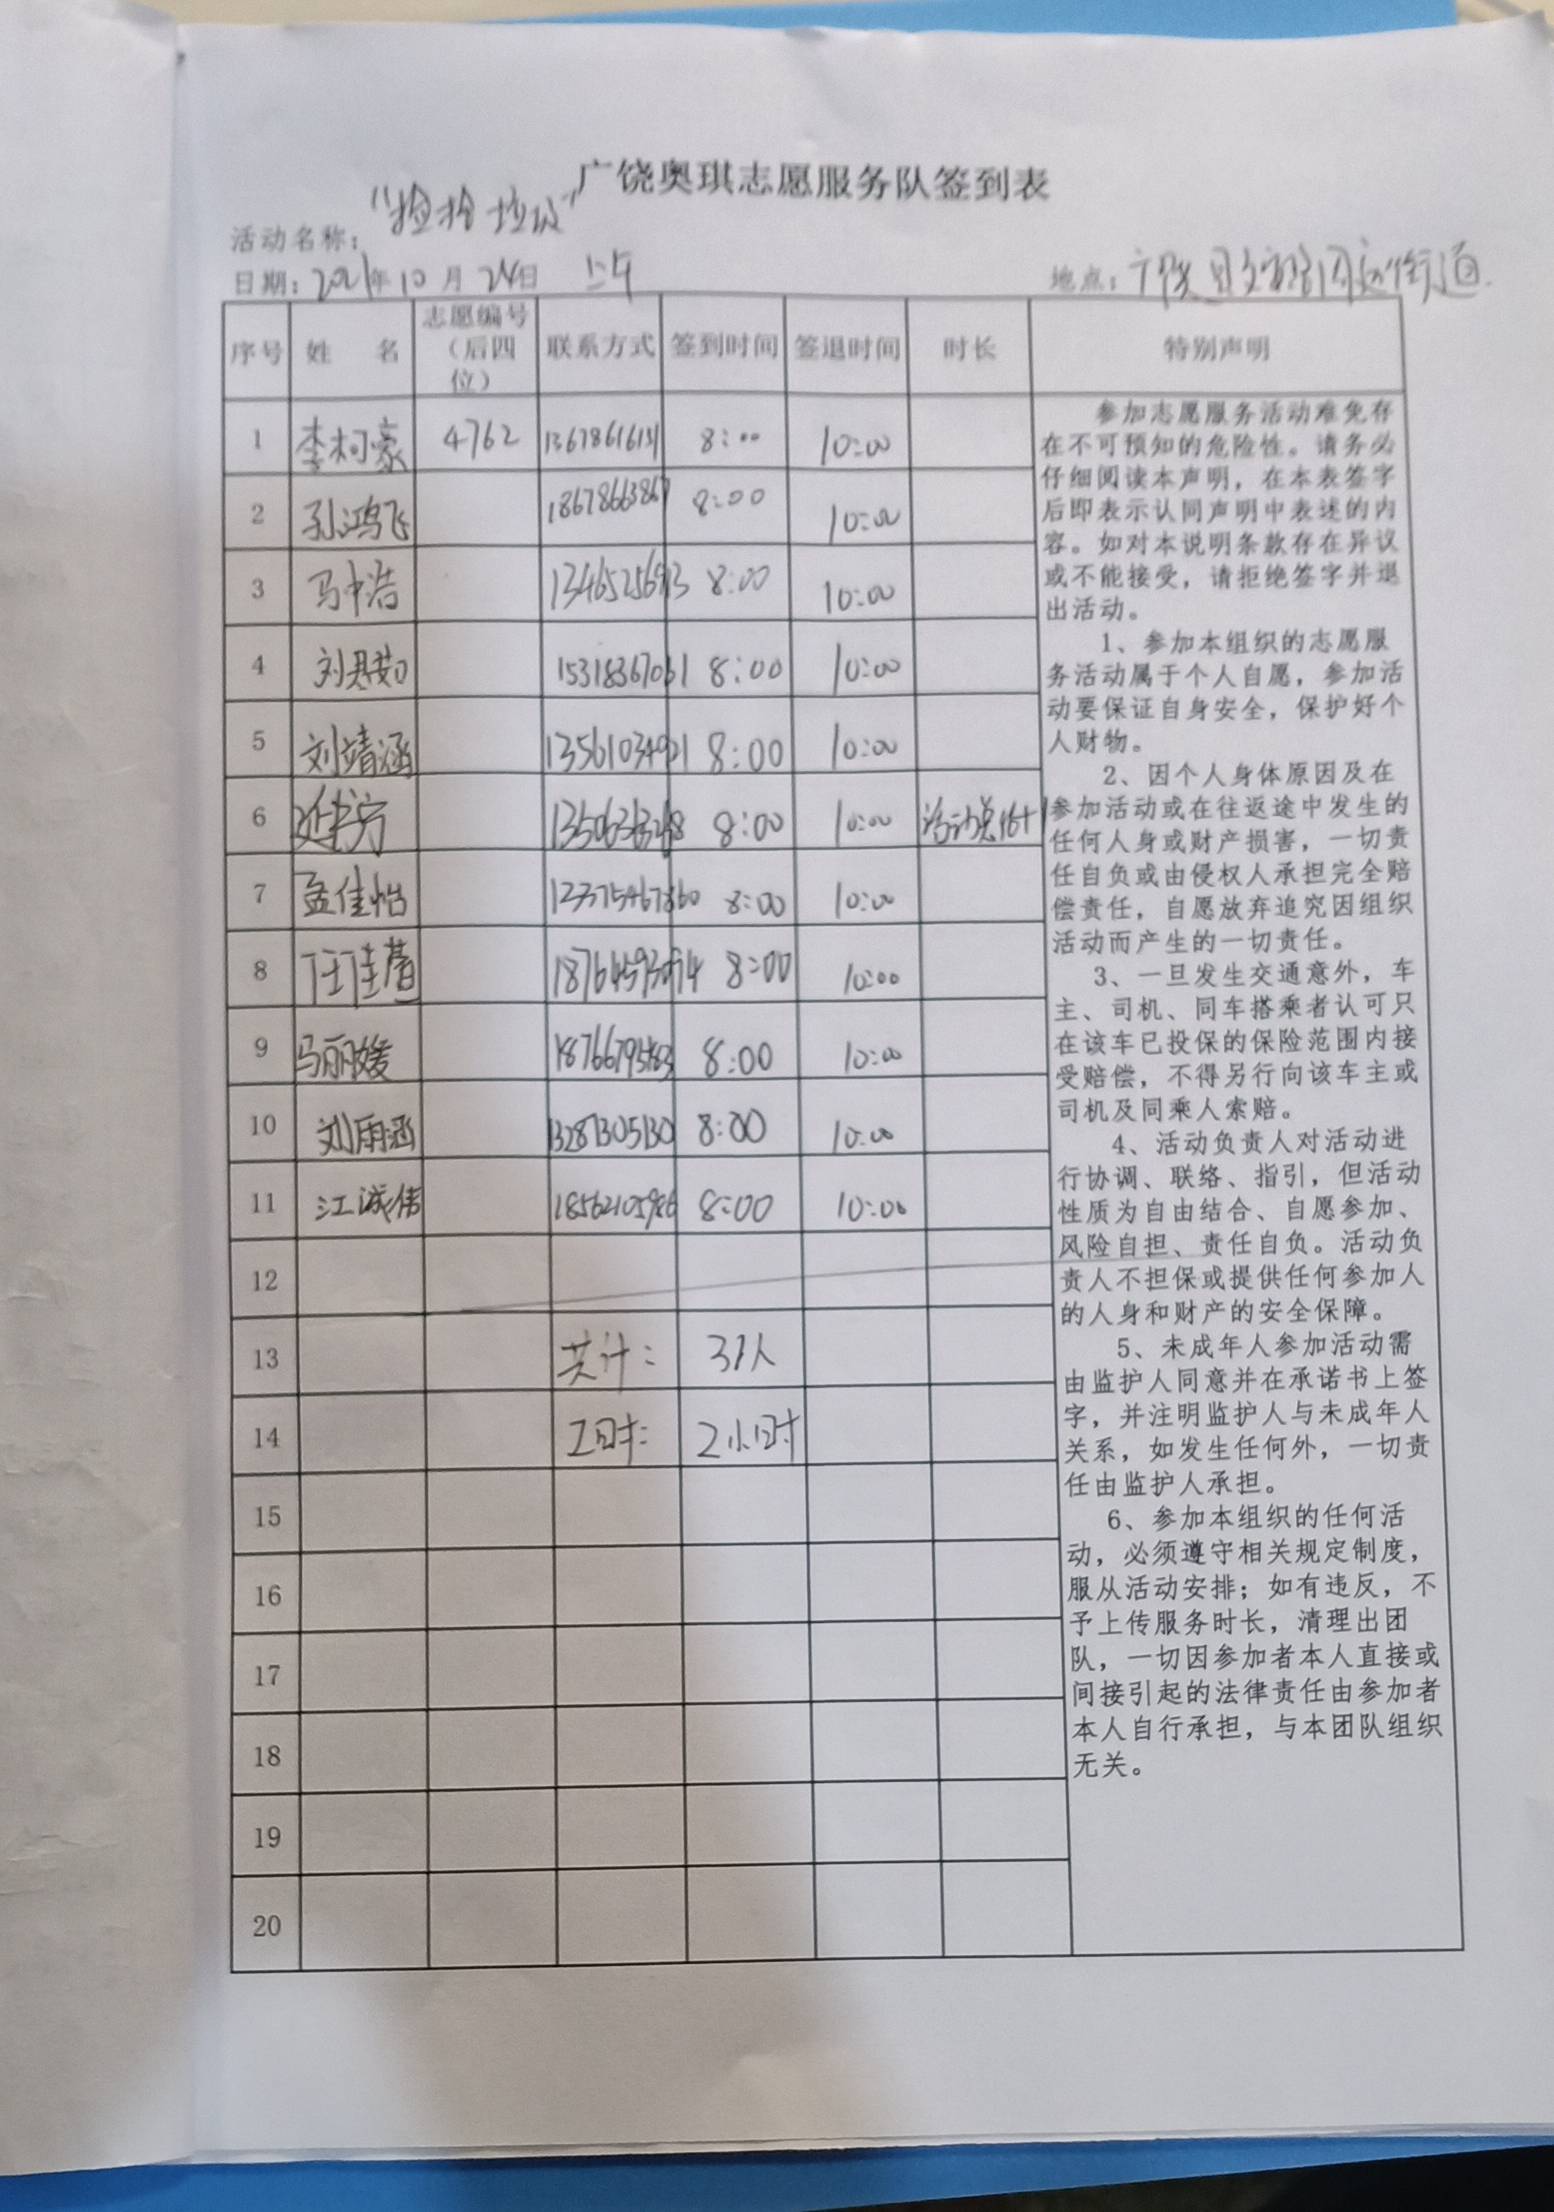 广饶奥琪志愿服务队签到表
活动名称：“捡拾垃圾”
日期：2021年10月24日 上午 地点：广饶县 周边街道
序号 姓 名 志愿编号（后四位） 联系方式 签到时间 签退时间 时长 特别声明
1 李柯豪 4762 13678616131 8:00 10:00
2 孙鸿飞 18678663867 8:00 10:00
3 马中浩 8:00 10:00
4 8:00 10:00
5 刘靖涵 8:00 10:00
6 8:00 10:00
7 孟佳怡 8:00 10:00
8 任佳萱 8:00 10:00
9 马丽媛 8:00 10:00
10 刘雨涵 13287305130 8:00 10:00
11 江诚伟 18562105986 8:00 10:00
12
13 共计： 31人
14 工时： 2小时
15
16
17
18
19
20
参加志愿服务活动难免存
在不可预知的危险性。请务必
仔细阅读本声明，在本表签字
后即表示认同声明中表述的内
容。如对本说明条款存在异议
或不能接受，请拒绝签字并退
出活动。
1、参加本组织的志愿服
务活动属于个人自愿，参加活
动要保证自身安全，保护好个
人财物。
2、因个人身体原因及在
参加活动或在往返途中发生的
任何人身或财产损害，一切责
任自负或由侵权人承担完全赔
偿责任，自愿放弃追究因组织
活动而产生的一切责任。
3、一旦发生交通意外，车
主、司机、同车搭乘者认可只
在该车已投保的保险范围内接
受赔偿，不得另行向该车主或
司机及同乘人索赔。
4、活动负责人对活动进
行协调、联络、指引，但活动
性质为自由结合、自愿参加、
风险自担、责任自负。活动负
责人不担保或提供任何参加人
的人身和财产的安全保障。
5、未成年人参加活动需
由监护人同意并在承诺书上签
字，并注明监护人与未成年人
关系，如发生任何外，一切责
任由监护人承担。
6、参加本组织的任何活
动，必须遵守相关规定制度，
服从活动安排；如有违反，不
予上传服务时长，清理出团
队，一切因参加者本人直接或
间接引起的法律责任由参加者
本人自行承担，与本团队组织
无关。